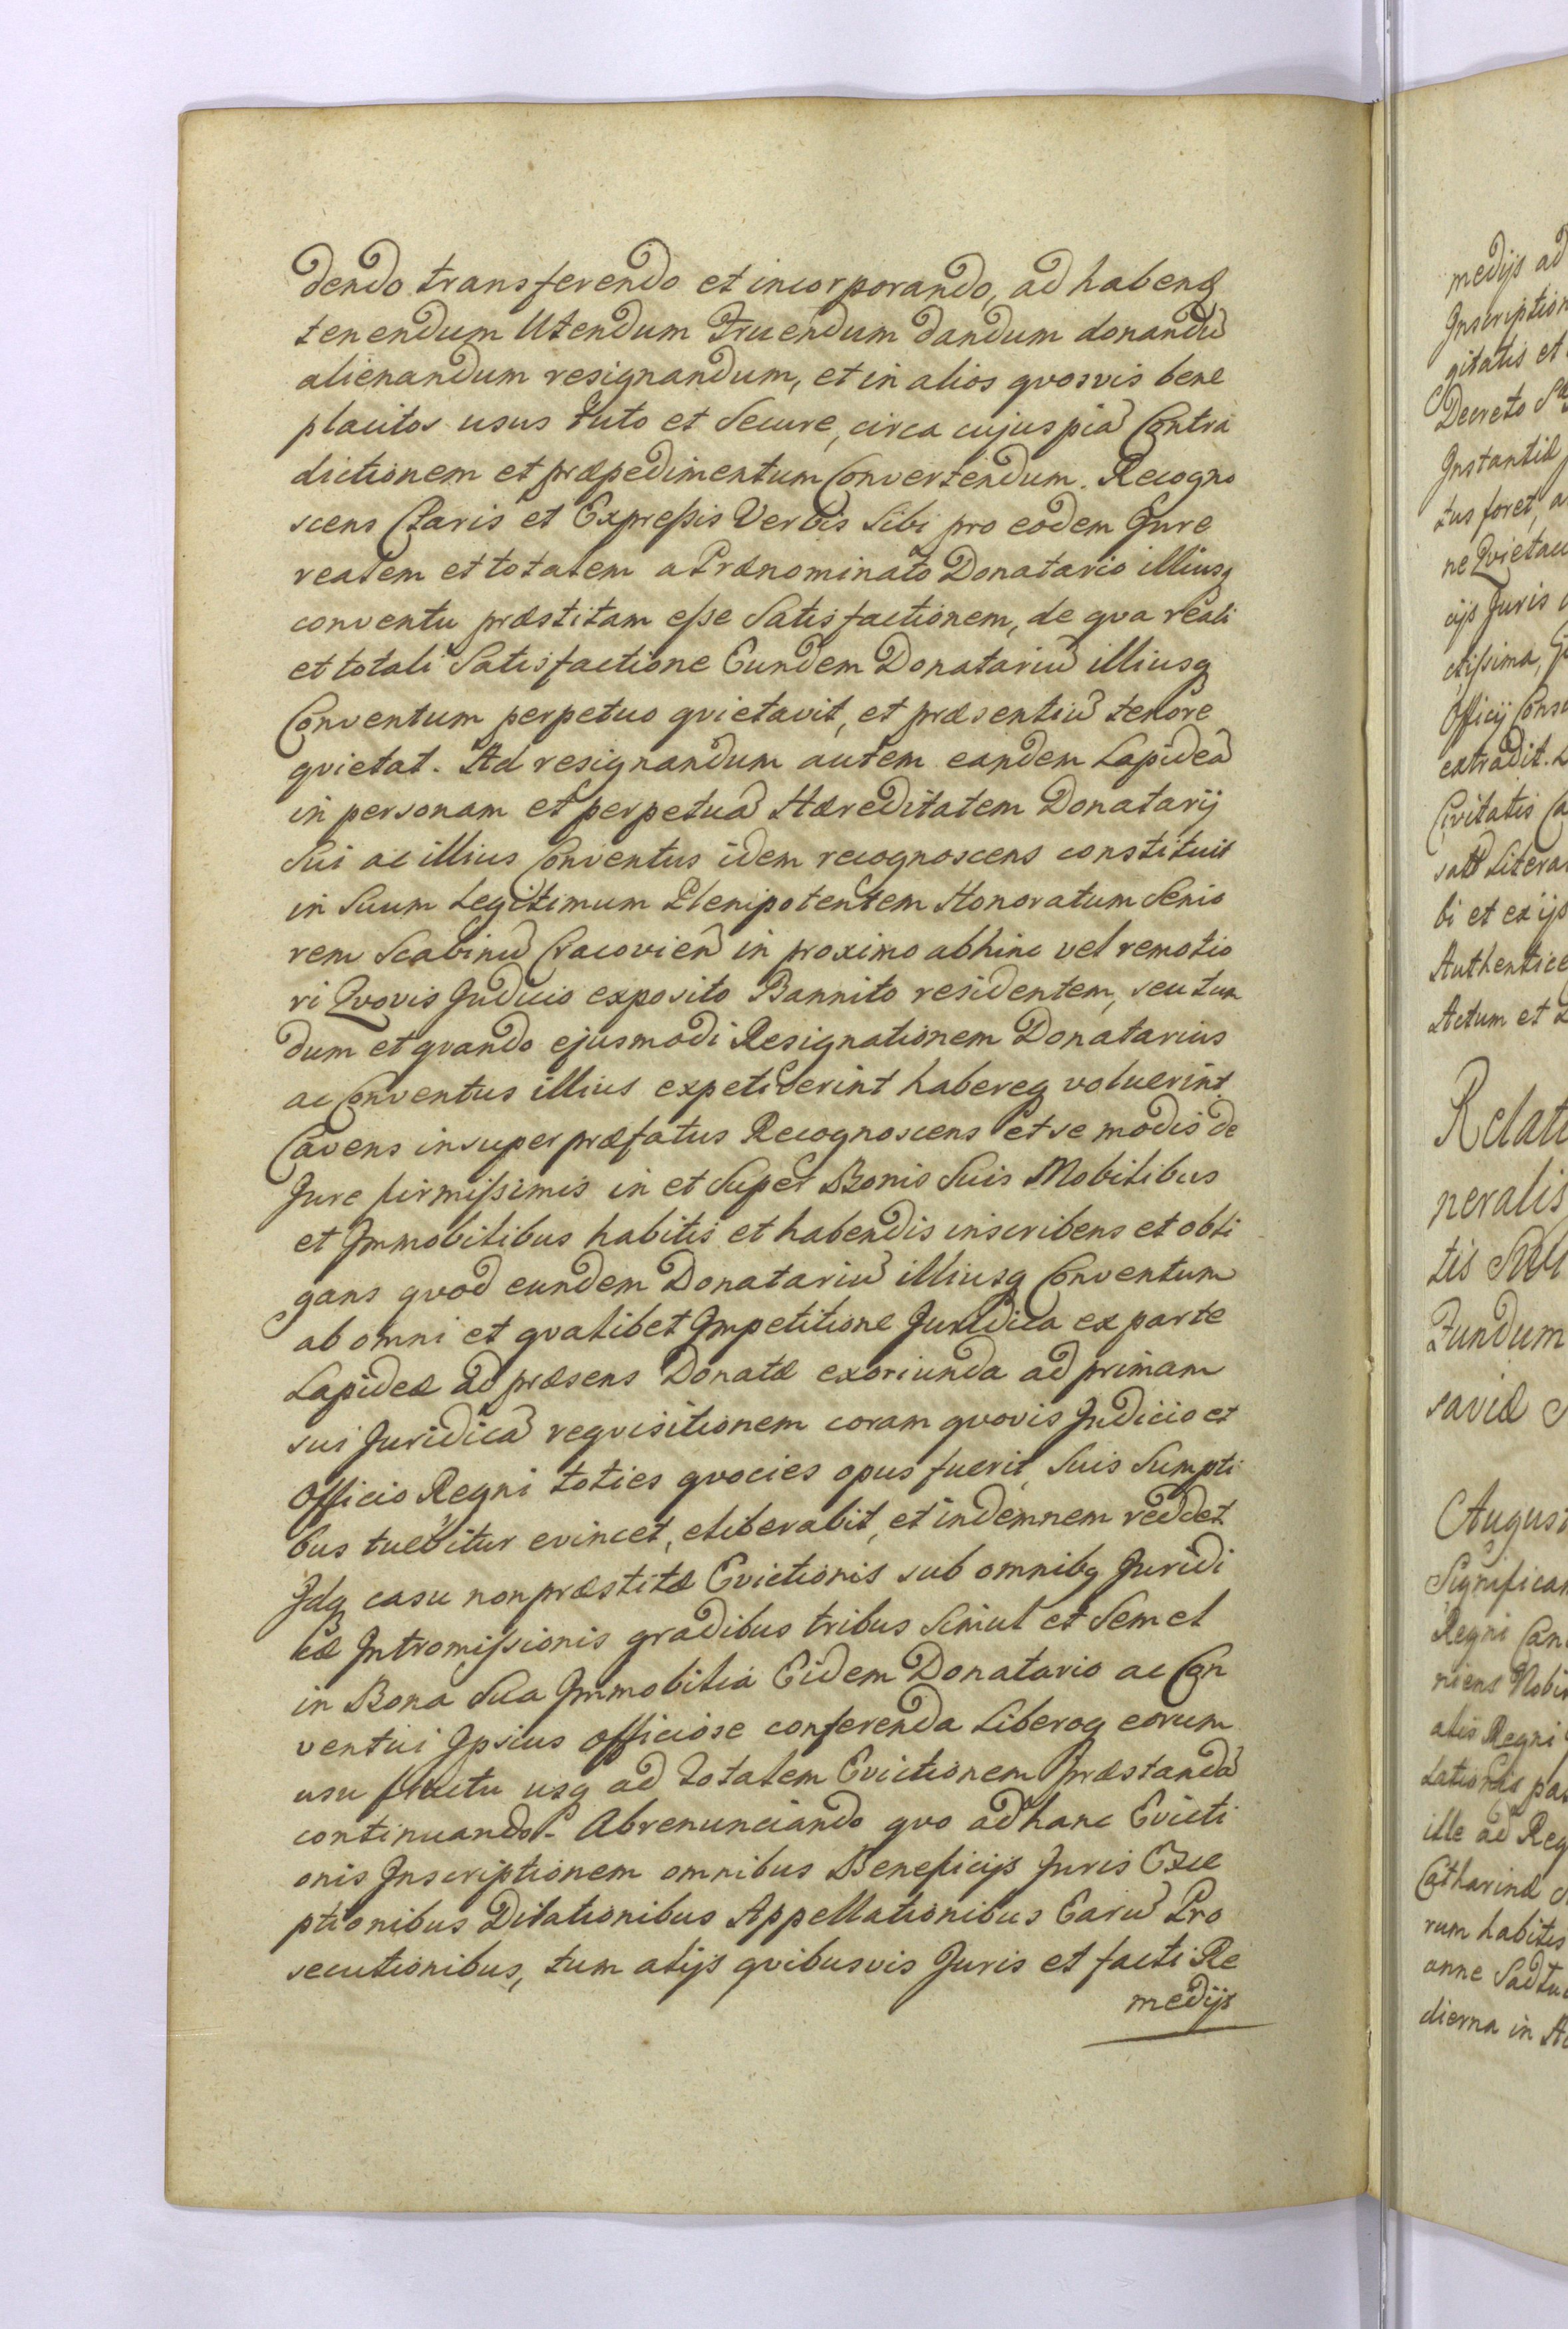 dendo transferendo et incorporando, ad habenđ
tenendum Utendum Fruendum dandum donandū
alienandum resignandum, et in alios qvosvis bene
placitos usus tuto et Secure, circa cujuspiā Contra
dictionem et præpedimentum Convertendum. Recogno
scens Claris et Expreſsis Verbis Sibi pro eodem Jure
realem et totalem a Prænominato Donatario illiusq
conventu præstitam eſse Satisfactionem, de qva reali
et totali Satisfactione Eundem Donatariū illiusq
Conventum perpetuo qvietavit, et præsentiū tenore
qvietat. Ad resignandum autem eandem Lapideā
in personam et perpetuā Hæreditatem Donatarij
Sui ac illius Conventus idem recognoscens constituit
in Suum Legitimum Plenipotentem Honoratum Senio
rem Scabinū Cracovien̄ in proximo abhinc vel remotio
ri Qvovis Judicio exposito Bannito residentem, seu tun
dum et qvando ejusmodi Resignationem Donatarius
ac Conventus illius expetiverint habereq voluerint
Cavens insuper præfatus Recognoscens et se modis de
Jure firmiſsimis in et Super Bonis Suis Mobilibus
et Immobilibus habitis et habendis inscribens et obli
gans qvod eundem Donatariū illiusq Conventum
ab omni et qvalibet Impetitione Juridica ex parte
Lapideæ ad præsens Donatæ exoriunda ad primam
sui Juridicā reqvisitionem coram qvovis Judicio et
Officio Regni toties qvocies opus fuerit Suis Sumpti
bus tuebitur evincet, eliberabit, et indemnem reddet
Idq casu non præstitæ Evictionis sub omnibq Juridi
cæ Intromiſsionis gradibus tribus Simul et Semel
in Bona Sua Immobilia Eidem Donatario ac Con
ventui Ipsius officiose conferenda Liberoq eorum
usu fructu usq ad totalem Evictionem Præstandā
continuando. Abrenunciando qvo ad hanc Evicti
onis Inscriptionem omnibus Beneficijs Juris Exce
ptionibus Dilationibus Appellationibus Earū Pro
secutionibus, tum alijs qvibusvis Juris et facti Re
medijs
medijs ad
Inscription
gitatis et
Decreto
Instantiæ
tus foret, a
ne Qvietau
cijs Juris
ctiſsima,
Officij Cons
extradit.
Civitatis Ca
Litera
bi et ex ijs
Authentice
Actum et
Relati
neralis
tis
Fundum
saviæ
August
Significan
Regni Can
niens Nobi
alis Regni
lationis pa
ille ad Reg
Catharinæ
rum habitis
anne
dierna in A